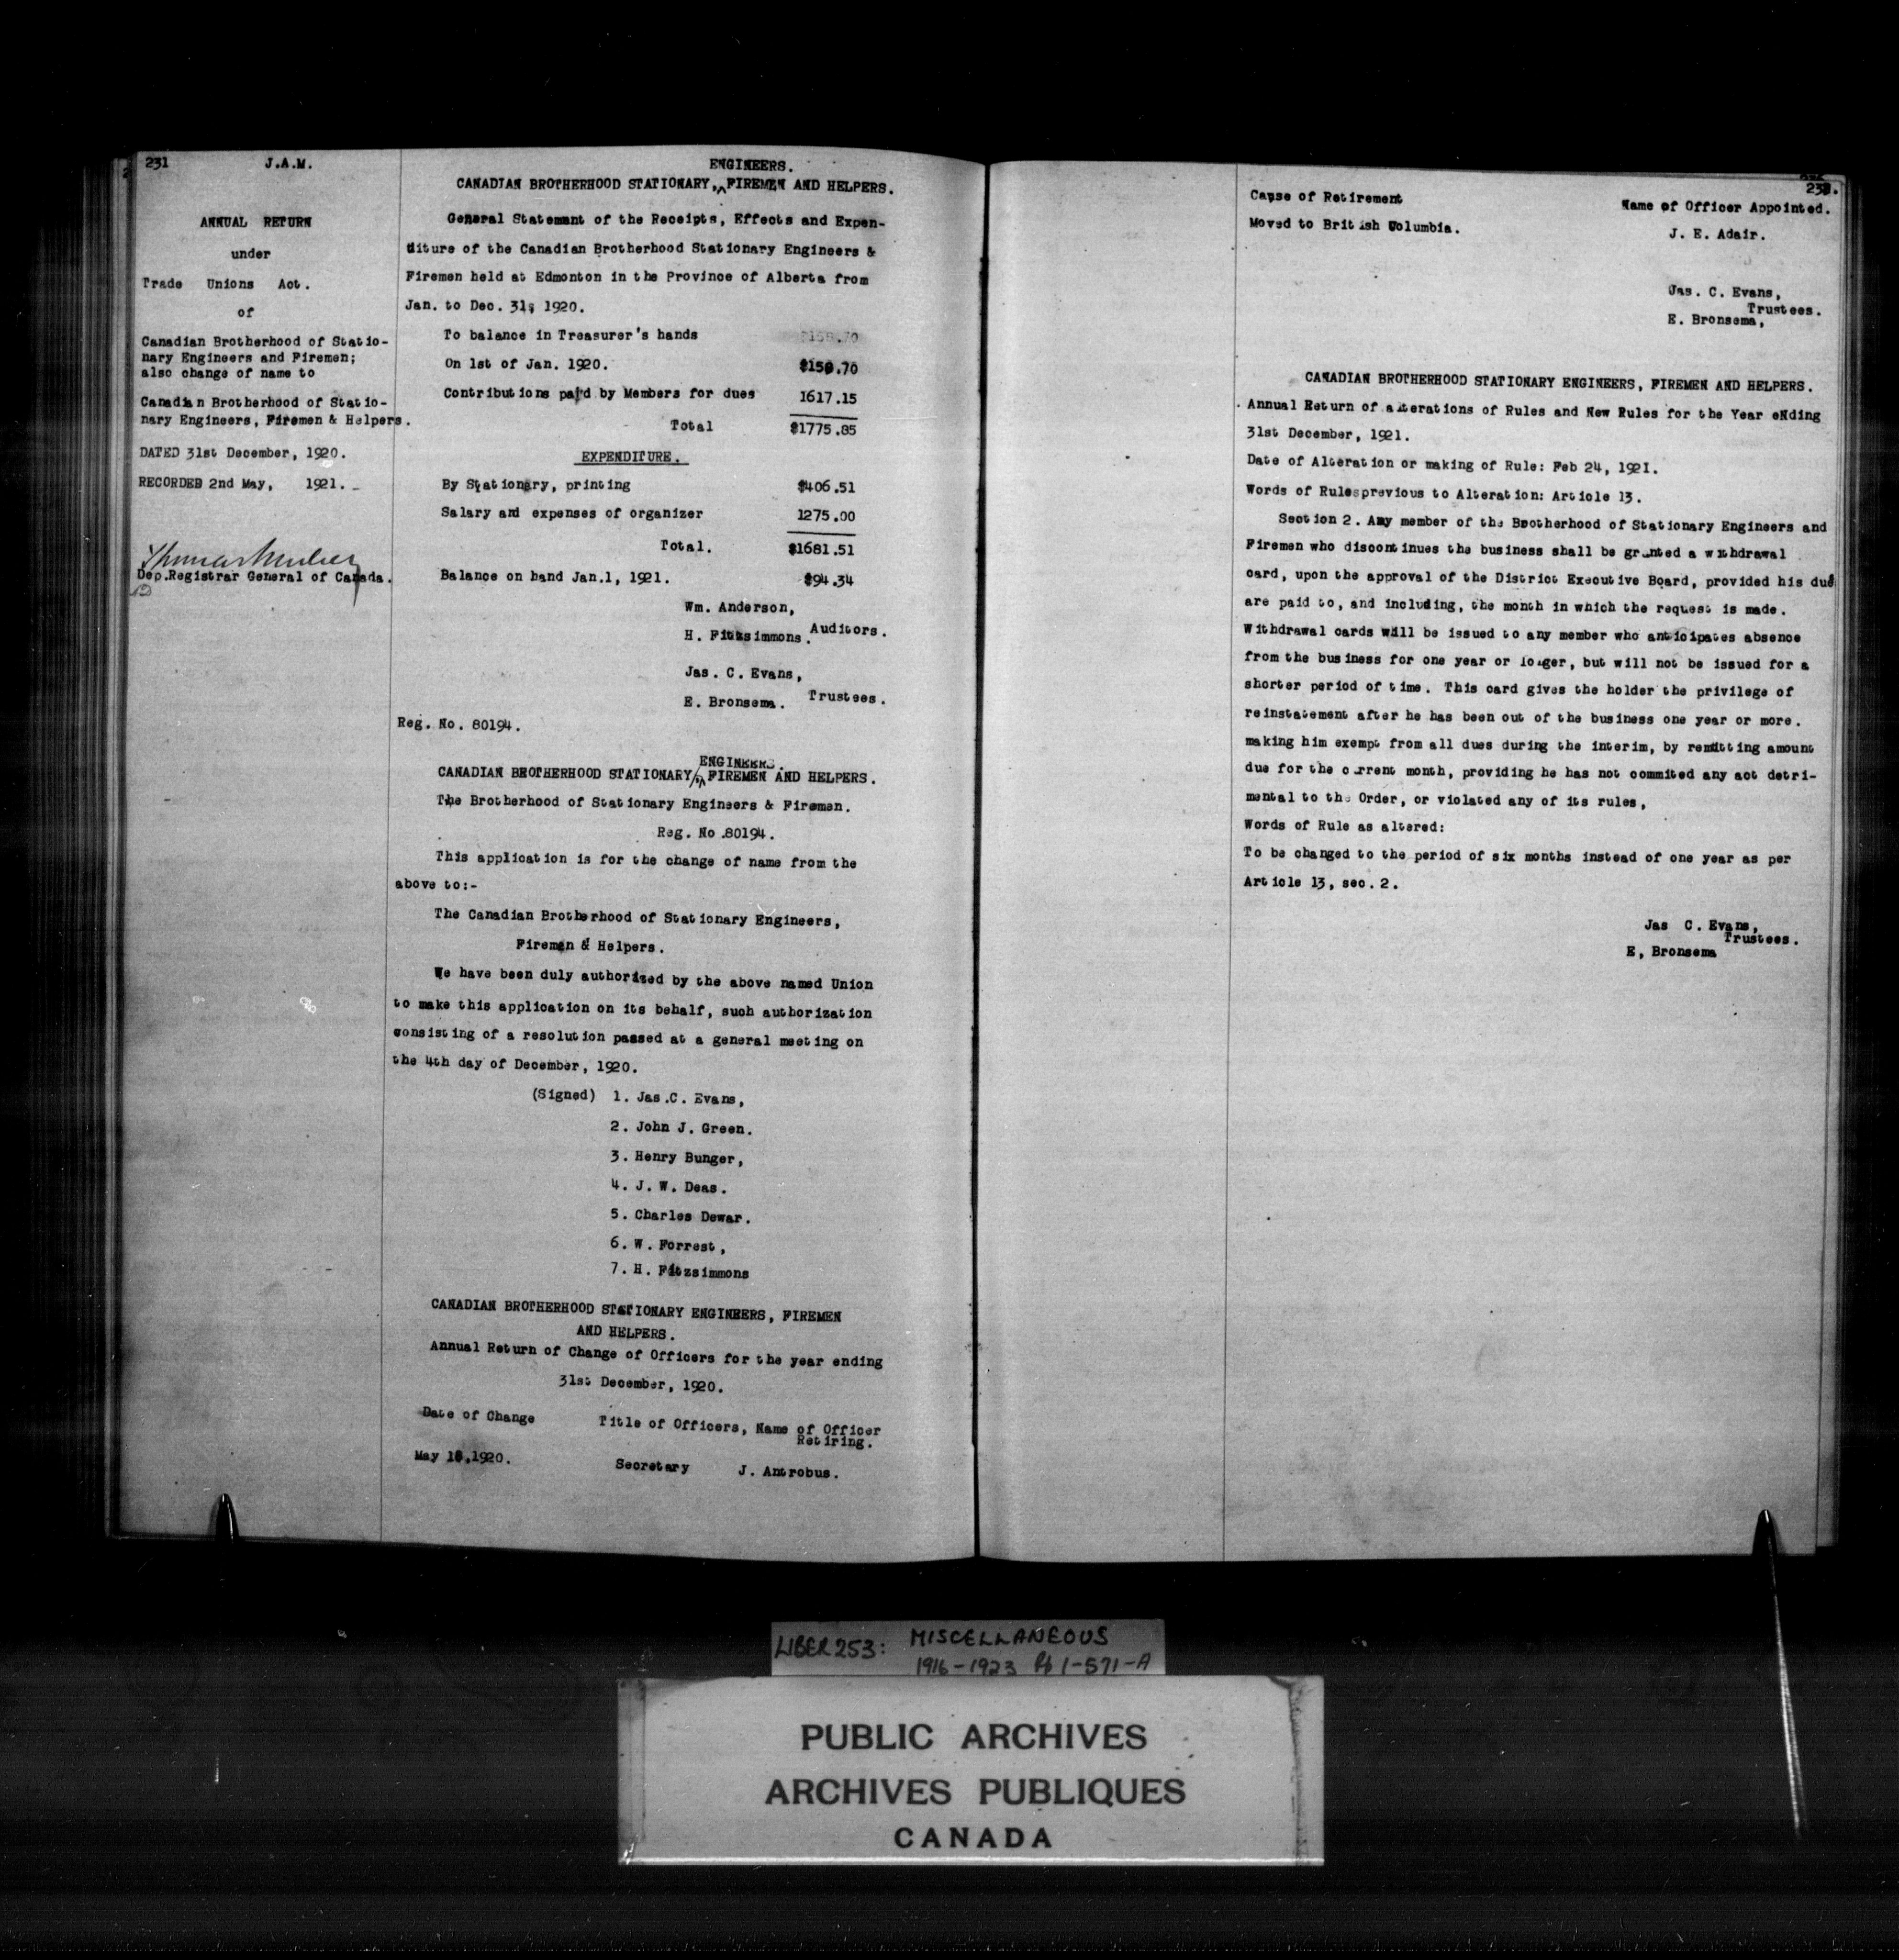 231 J.A.M.
ANNUAL RETURN
under
Trade Unions Act.
of
Canadian Brotherhood of Statio-
nary Engineers and Firemen;
also change of name to
Canadian Brotherhood of Statio-
nary Engineers, Firemen & Helpers.
DATED 31st December, 1920.
RECORDED 2nd May, 1921.
Dep.Registrar General of Canada.
ENGINEERS.
CANADIAN BROTHERHOOD STATIONARY, FIREMEN AND HELPERS.
General Statemant of the Receipts, Effects and Expen-
diture of the Canadian Brotherhood Stationary Engineers &
Firemen held at Edmonton in the Province of Alberta from
Jan. to Dec. 31, 1920.
To balance in Treasurer's hands
On 1st of Jan. 1920. $158.70
Contributions paid by Members for dues 1617.15
Total $1775.85
EXPENDITURE.
By Stationary, printing $406.51
Salary and expenses of organizer 1275.00
Total. $1681.51
Balance on hand Jan.1, 1921. $94.34
Wm. Anderson,
H. Fitzsimmons. Auditors.
Jas. C. Evans,
E. Bronsema. Trustees.
Reg. No. 80194.
ENGINEERS.
CANADIAN BROTHERHOOD STATIONARY, FIREMEN AND HELPERS.
The Brotherhood of Stationary Engineers & Firemen.
Reg. No.80194.
This application is for the change of name from the
above to:-
The Canadian Brotherhood of Stationary Engineers,
Firemen & Helpers.
We have been duly authorized by the above named Union
to make this application on its behalf, such authorization
consisting of a resolution passed at a general meeting on
the 4th day of December, 1920.
(Signed) 1. Jas.C. Evans,
2. John J. Green.
3. Henry Bunger,
4. J. W. Deas.
5. Charles Dewar.
6. W. Forrest,
7. H. Fitzsimmons
CANADIAN BROTHERHOOD STATIONARY ENGINEERS, FIREMEN
AND HELPERS.
Annual Return of Change of Officers for the year ending
31st December, 1920.
Date of Change Title of Officers, Name of Officer
Retiring.
May 18,1920. Secretary J. Antrobus.
Cause of Retirement Name of Officer Appointed.
Moved to British Columbia. J. E. Adair.
Jas. C. Evans,
Trustees.
E. Bronsema,
CANADIAN BROTHERHOOD STATIONARY ENGINEERS, FIREMEN AND HELPERS.
Annual Return of alterations of Rules and New Rules for the Year eNding
31st December, 1921.
Date of Alteration or making of Rule: Feb 24, 1921.
Words of Rulesprevious to Alteration: Article 13.
Section 2. Any member of the Brotherhood of Stationary Engineers and
Firemen who discontinues the business shall be granted a withdrawal
card, upon the approval of the District Executive Board, provided his dues
are paid to, and including, the month in which the request is made.
Withdrawal cards will be issued to any member who anticipates absence
from the business for one year or longer, but will not be issued for a
shorter period of time. This card gives the holder the privilege of
reinstatement after he has been out of the business one year or more.
making him exempt from all dues during the interim, by remitting amount
due for the current month, providing he has not commited any act detri-
mental to the Order, or violated any of its rules,
Words of Rule as altered:
To be changed to the period of six months instead of one year as per
Article 13, sec. 2.
Jas C. Evans,
Trustees.
E, Bronsema
LIBER 253: MISCELLANEOUS
1916-1923 Pp 1-571-A
PUBLIC ARCHIVES
ARCHIVES PUBLIQUES
CANADA